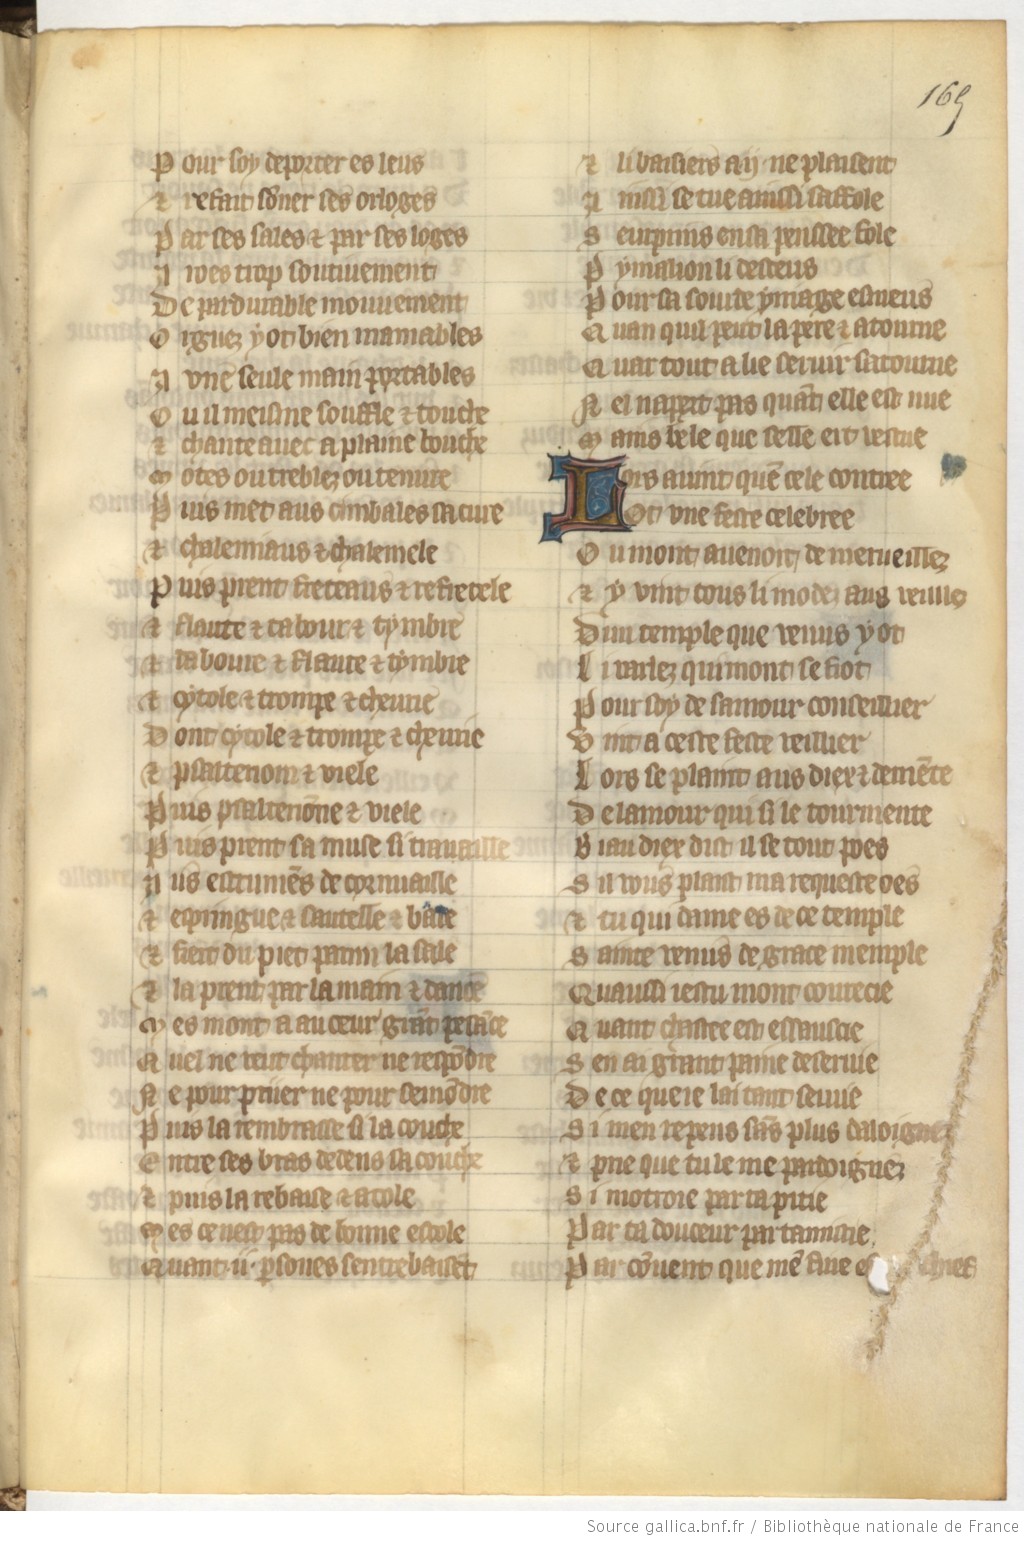 165
Pour soy deporter es leus
⁊ refait sõner ses orloges
Par ses sales ⁊ par ses loges
A roes trop soutiuement
De pardurable mouuement
Orguez y ot bien maniables
A vne seule main portables
Ou il meisme souffle ⁊ touche
⁊ chante auec a plaine bouche
Motes ou treblez ou tenure
Puis met aus cimbales sa cure
⁊ chalemiaus ⁊ chalemele
Puis prent freteaus ⁊ refretele
⁊ flaute ⁊ tabour ⁊ tymbre
⁊ taboure ⁊ flaute ⁊ tymbre
⁊ cytole ⁊ trompe ⁊ cheurie
Dont cytole ⁊ trompe ⁊ cheurie
⁊ psalterion ⁊ viele
Puis psalterionne ⁊ viele
Puis prent sa muse si trauaille
Aus estrumẽs de cornuaille
⁊ espringue ⁊ sautelle ⁊ bale
⁊ fiert du piet parmi la sale
⁊ la prent par la main ⁊ dance
Mes mont a au cuer grãt pesãce
Quel ne veut chanter ne respõdre
Ne pour priier ne pour semõdre
Puis la rembrasse si la couche
Entre ses bras dedens sa couche
⁊ puis la rebaise ⁊ acole
Mes ce nest pas de bonne escole
Quant ·ii· psones sentrebaisẽt
⁊ li baisiers a ·ii· ne plaisent
Ainsi se tue ainssi saffole
Seurpris en sa penssee fole
Pymalion li deceus
Pour sa sourde ymage esmeus
Quan quil peut la pere ⁊ atourne
Quar tout a lie seruir satourne
Nel napert pas quãt elle est nue
Mains bele que selle ert vestue
Lors auint quẽ cele contree
Ot vne feste celebree
Ou mont auenoit de merueillez
⁊ y vint tous li mõdes aus veillez
Dun temple que venus y ot
Li varlez qui mont se fiot
Pour soy de samour conseillier
Vint a ceste feste veillier
Lors se plaint aus diex ⁊ demẽte
De lamour qui si le tourmente
Biau diex dist il se tout poes
Sil vous plaist ma requeste oes
⁊ tu qui dame es de ce temple
Sainte venus de grace memple
Quaussi ies tu mont courecie
Quant chastee est essaucie
Sen ai grant paine deseruie
De ce que ie lai tant seruie
Si men repens sãs plus daloigne
⁊ prie que tu le me pardoignez
Si motroie par ta pitie
Par ta douceur par tamitie
Par cõuent que mẽ fuie